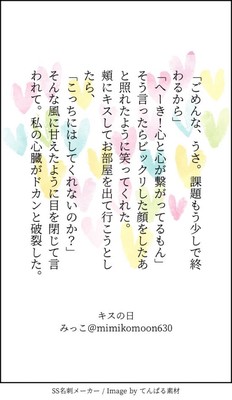 「ごめんな、うさ。課題もう少しで終
わるから」
「へーき！心と心が繋がってるもん」
そう言ったらビックリした顔をしたあ
と照れたように笑ってくれた。
頬にキスしてお部屋を出て行こうとし
たら、
「こっちにはしてくれないのか？」
そんな風に甘えたように目を閉じて言
われて。私の心臓がドカンと破裂した。
キスの日
みっこ@mimikomoon630
SS名刺メーカー / Image by てんぱる素材